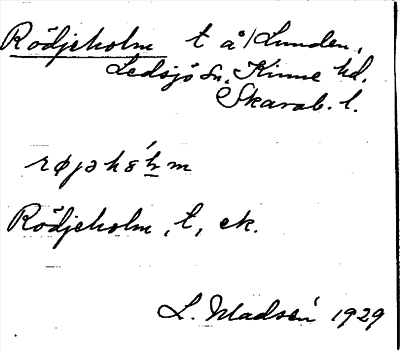 Rödjeholm t å/Lunden,
Ledsjö sn. Kinne hd.
Skarab. l.
Rödjeholm, t, ek.
L. Madsén 1929